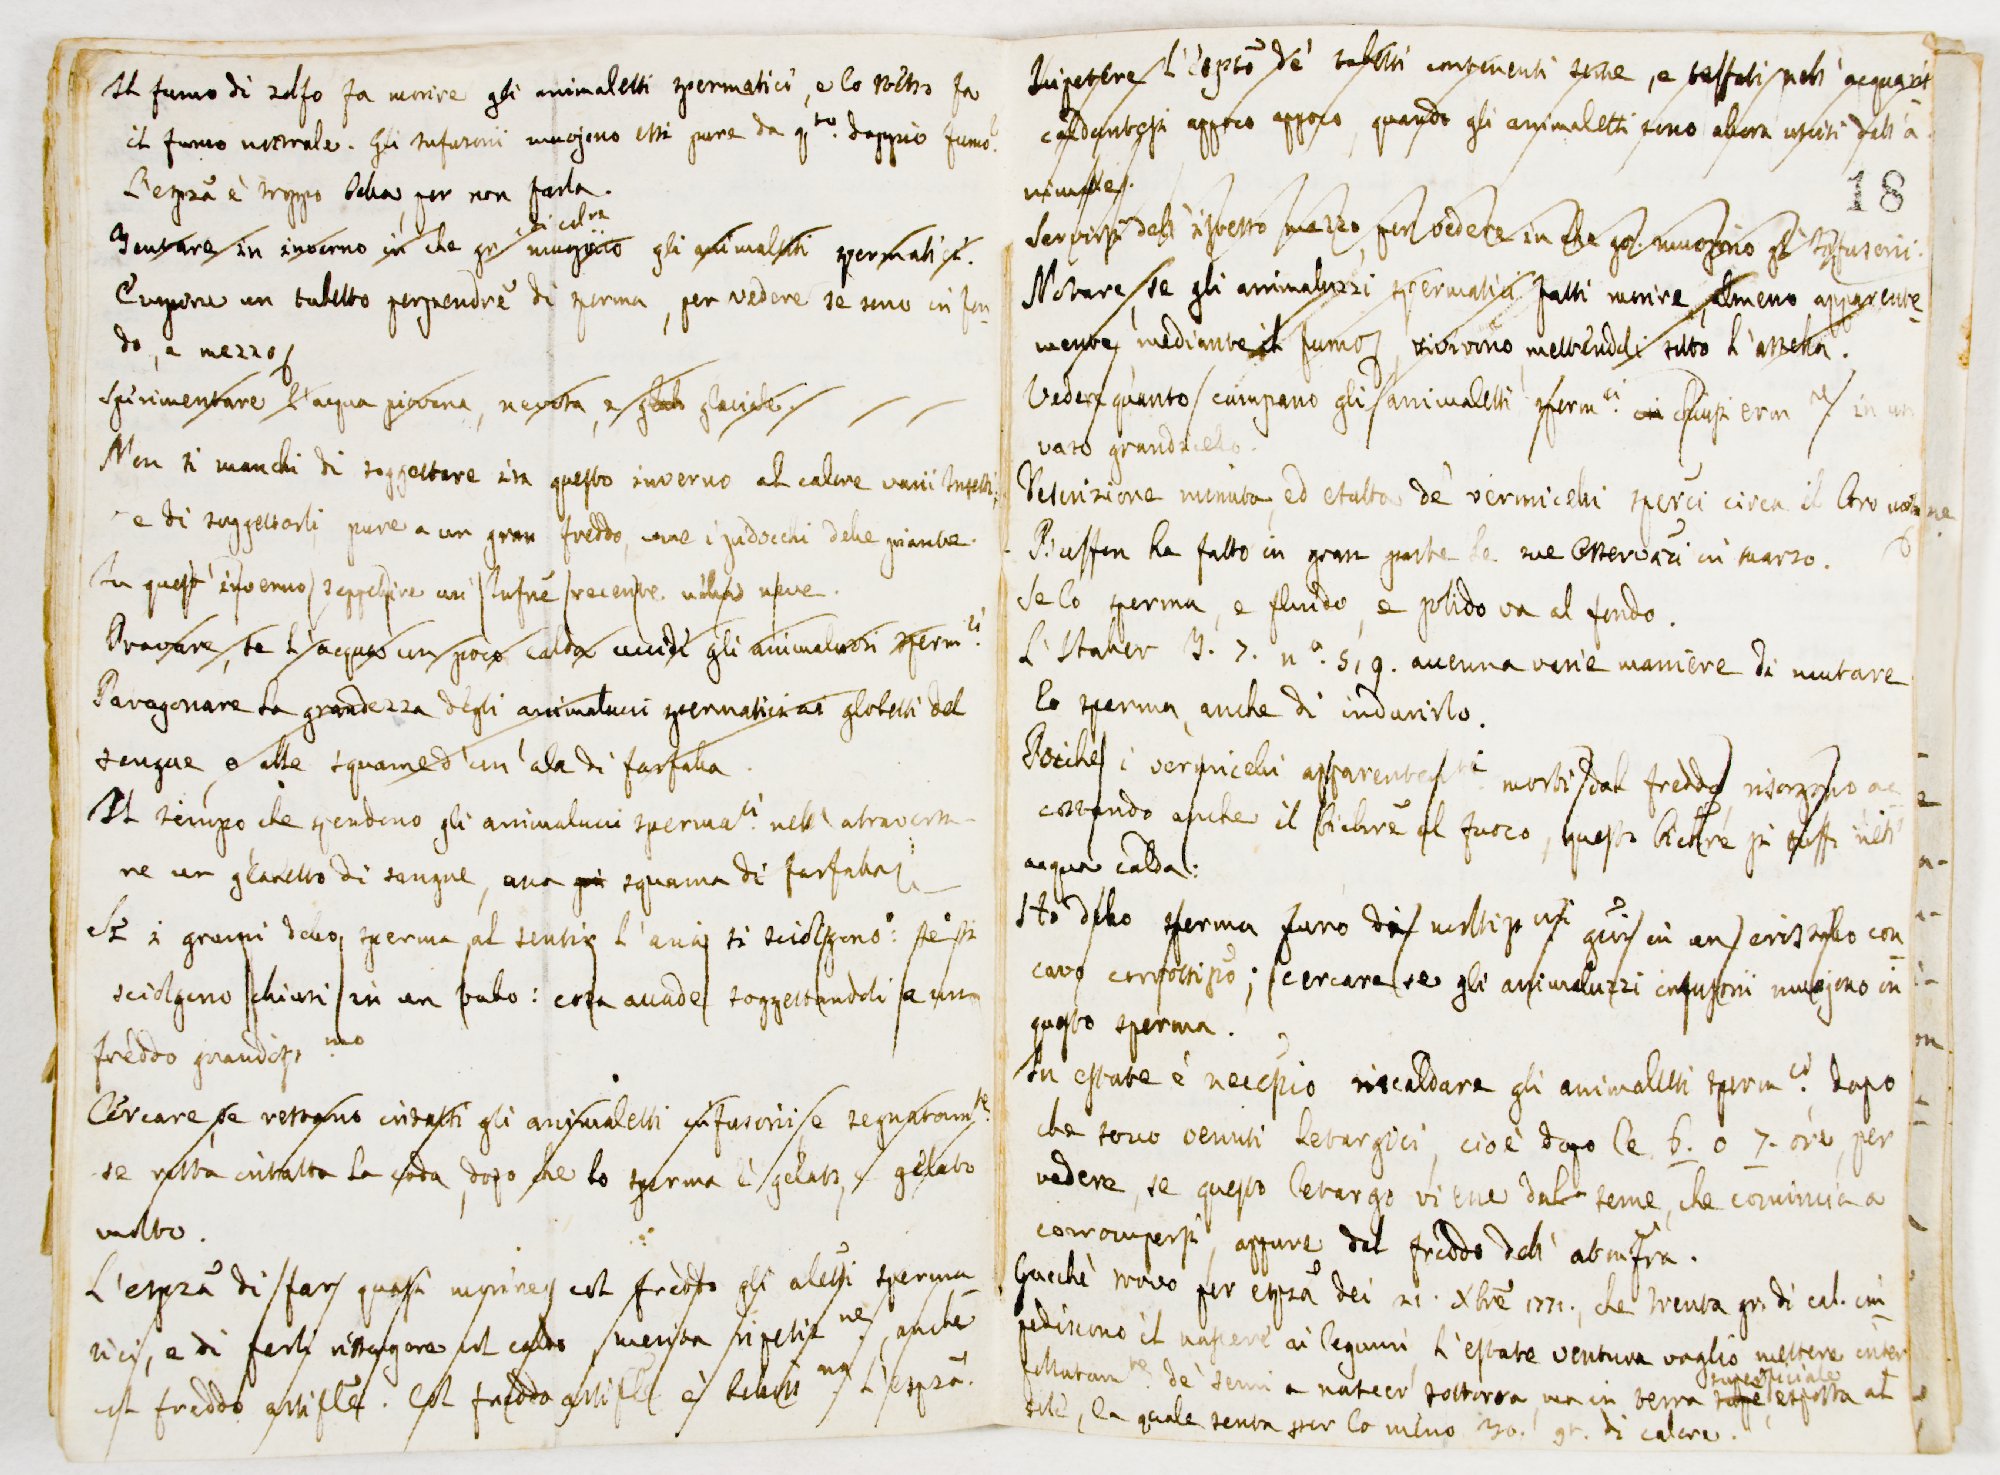 Il fumo di zolfo fa morire gli animaletti spermatici, e lo stesso fa
il fumo normale. Gli infusorii muojono essi pure da q.sto doppio fumo.
L'esprã è troppo bella per non farla.
Tentare in inverno in che gr. di cal.re muojono gli animaletti spermatici.
Empire un tubetto perpendrẽ di sperma, per vedere se sono in fon-
do, a mezzo
Sperimentare l'acqua piovana, nevosa, e glaciale.
Non si manchi di soggettare in questo inverno al calore varii Insetti,
e di soggettarli pure a un gran freddo, come i pidocchi delle piante.
In quest'inverno seppellire un' Infuẽ recente nella neve.
Provare, se l'acqua un poco calda uccide gli animaluzzi sperm.ci
Paragonare la grandezza degli animalucci spermatici ai globetti del
sangue, o alle squame d'un'ala di farfalla.
Il tempo che spendono gli animalucci sperma.ci nell' atraversa-
re un glo­betto di sangue, una squama di farfalla
Se i grumi dello sperma al sentir l'aria si sciolgono: se si
sciolgono chiusi in un tubo: cosa accade soggettandoli a un
freddo grandiss.mo
Cercare, se restano intatti gli animaletti infusorii, e segnatam.te
se resta intatta la coda, dopo che lo sperma è gelato, e gelato
molto.
L'esprã di far quasi morire col freddo gli aletti sperma
tici, e di farli risorgere col caldo merita ripetiz.ne, anche
col freddo artiflẽ. Col freddo artiflẽ è beliss.ma l'esprã.
Ripetere l' de' tubetti contenenti seme, e tuffati nell' acqua
caldantesi appoco appoco, quando gli animaletti sono allora usciti dall'a
nimale.
18
Servirsi dell' istesso mezzo per vedere in che gr. muojono gl' Infusorii.
Notare, se gli animaluzzi spermatici fatti morire, almeno apparente-
mente, mediante il fumo, rivivono mettendoli sotto l'
Vedere quanto campano gli animaletti sperm.ci chiusi erm.ne in un
vaso grandicello.
Descrizione minuta, ed esatta de' vermicelli spercĩ circa il loro
Buffon ha fatto in gran parte le sue Osservazĩ in Marzo.
Se lo sperma, e fluido, e solido va al fondo.
L'Haller T. 7. n.o 5, 9. accenna varie maniere di mutare
lo sperma, anche di indurirlo.
Poiché i vermicelli apparentem.te morti dal freddo, risorgono ac
costando anche il bichrẽ al fuoco, questo bichrẽ si tuffi nell'
acqua calda:
Ho dello sperma furo di in un cristallo con-
cavo ; cercare se gli animaluzzi infusorii muojono in
questo sperma.
In estate è necessio riscaldare gli animaletti sperm.ci dopo
che sono venuti letargici, cioè dopo le 6. o 7. ore, per
vedere, se questo letargo viene dal seme, che comincia a
corrompersi, oppure dal freddo dell' atmsfra.
Giacchè trovo per esprã dei 21. Xbrẽ 1771., che trenta gr. di cal. im-
pediscono il nascere ai legumi, l'estate ventura voglio mettere inter
pollatam.te de' semi a nascer sotterra, ma in terra superficiale esposta al
sole, la quale senta per lo meno 30. gr. di calore.